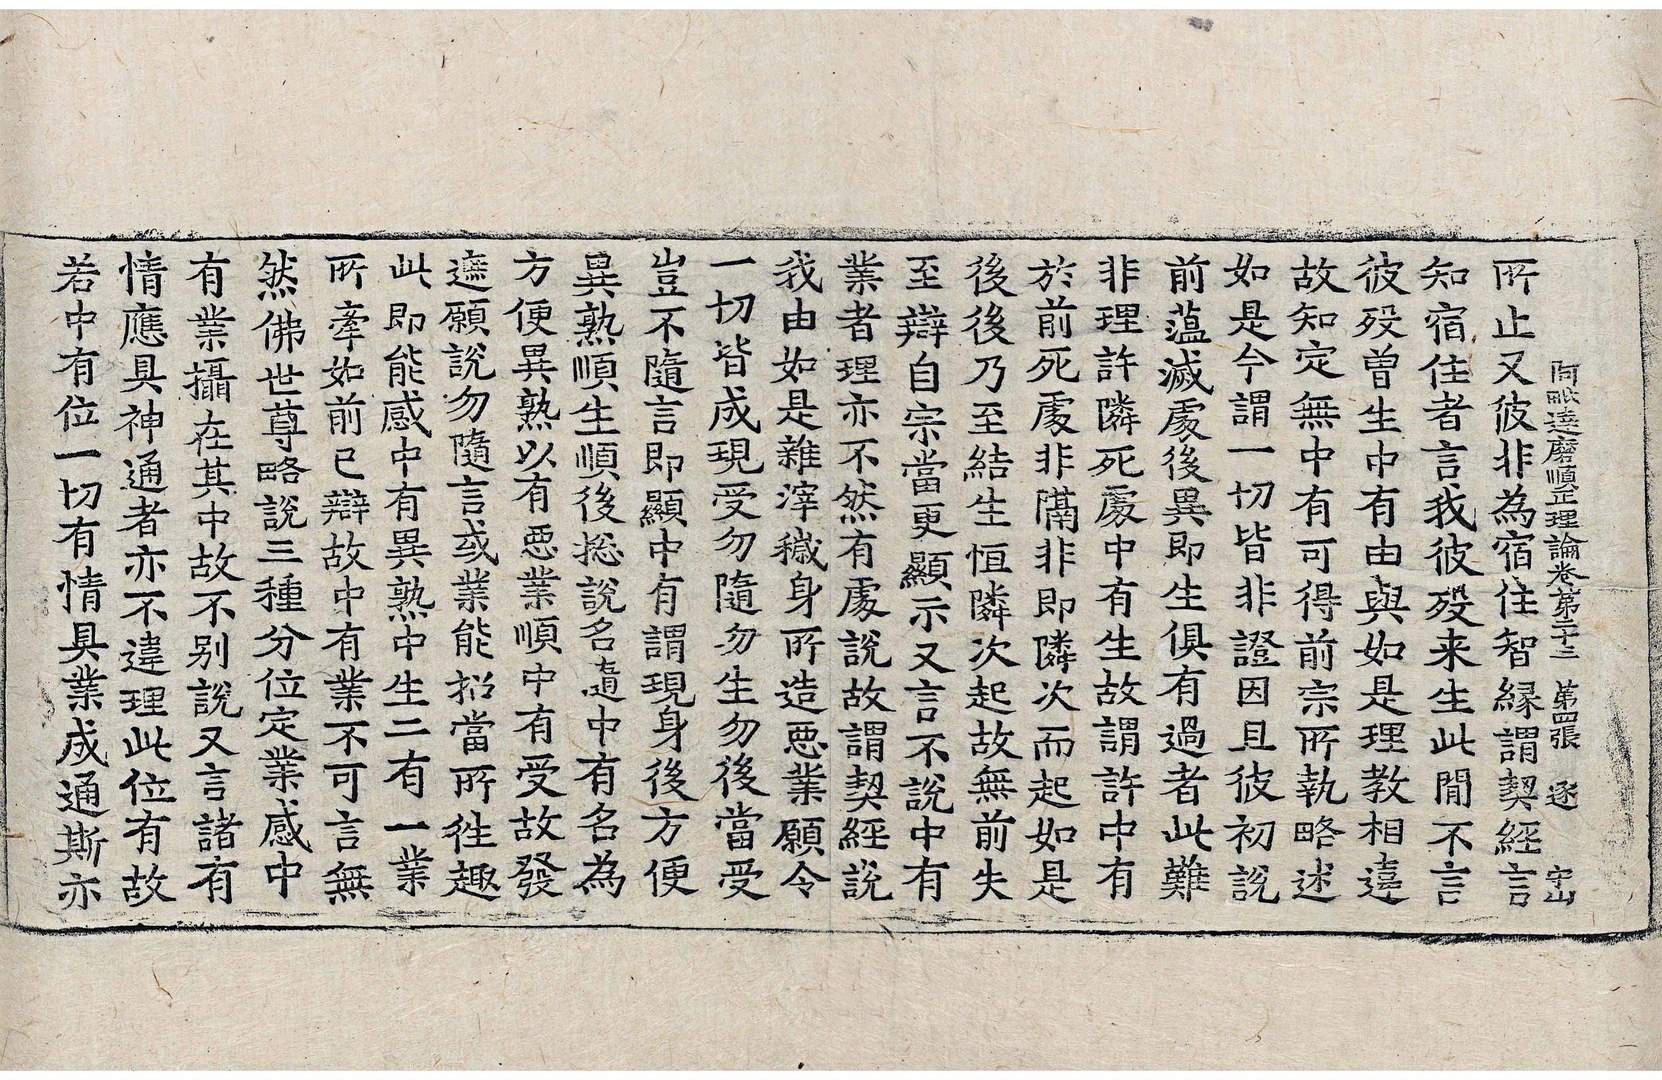 阿毗達磨順正理論卷第二十三 第四張 逐 守山
所止又彼非為宿住智縁謂契經言
知宿住者言我彼歿来生此間不言
彼歿曽生中有由與如是理教相違
故知定無中有可得前宗所執略述
如是今謂一切皆非證因且彼初說
前薀滅處後異即生俱有過者此難
非理許隣死處中有生故謂許中有
於前死處非隔非即隣次而起如是
後後乃至結生恒隣次起故無前失
至辯自宗當更顯示又言不說中有
業者理亦不然有處說故謂契經說
我由如是雜滓穢身所造惡業願令
一切皆成現受勿隨勿生勿後當受
豈不隨言即顯中有謂現身後方便
異熟順生順後捴說名隨中有名為
方便異熟以有惡業順中有受故發
遮願說勿隨言或業能招當所徃趣
此即能感中有異熟中生二有一業
所牽如前已辯故中有業不可言無
然佛世尊略說三種分位定業感中
有業攝在其中故不别說又言諸有
情應具神通者亦不違理此位有故
若中有位一切有情具業成通斯亦